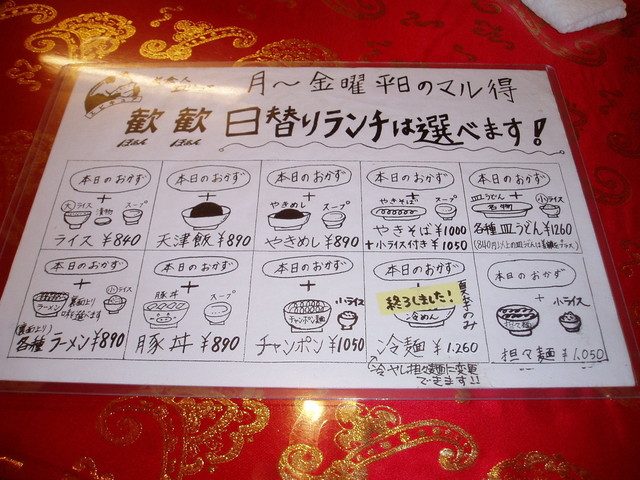 月～金曜平日のマル得
歓歓 日替りランチは選べます!
本日のおかず
+
大ライス 漬物 スープ
ライス ¥840
本日のおかず
+
天津飯 ¥890
本日のおかず
+
やきめし スープ
やきめし ¥890
本日のおかず
+
やきそば スープ
やきそば ¥1000
+小ライス付き ¥1050
本日のおかず
+
皿うどん 小ライス
名物
各種皿うどん ¥1260
本日のおかず
+
ラーメン 小ライス
裏面より
(裏面より)
各種ラーメン ¥890
本日のおかず
+
豚丼 スープ
豚丼 ¥890
本日のおかず
+
チャンポン麺 小ライス
チャンポン ¥1050
本日の
終了しました!
夏季のみ
冷めん
冷麺 ¥1.260
冷やし担々麺に変更
できます!!
本日のおかず
+
担々麺 小ライス
担々麺 ¥1.050